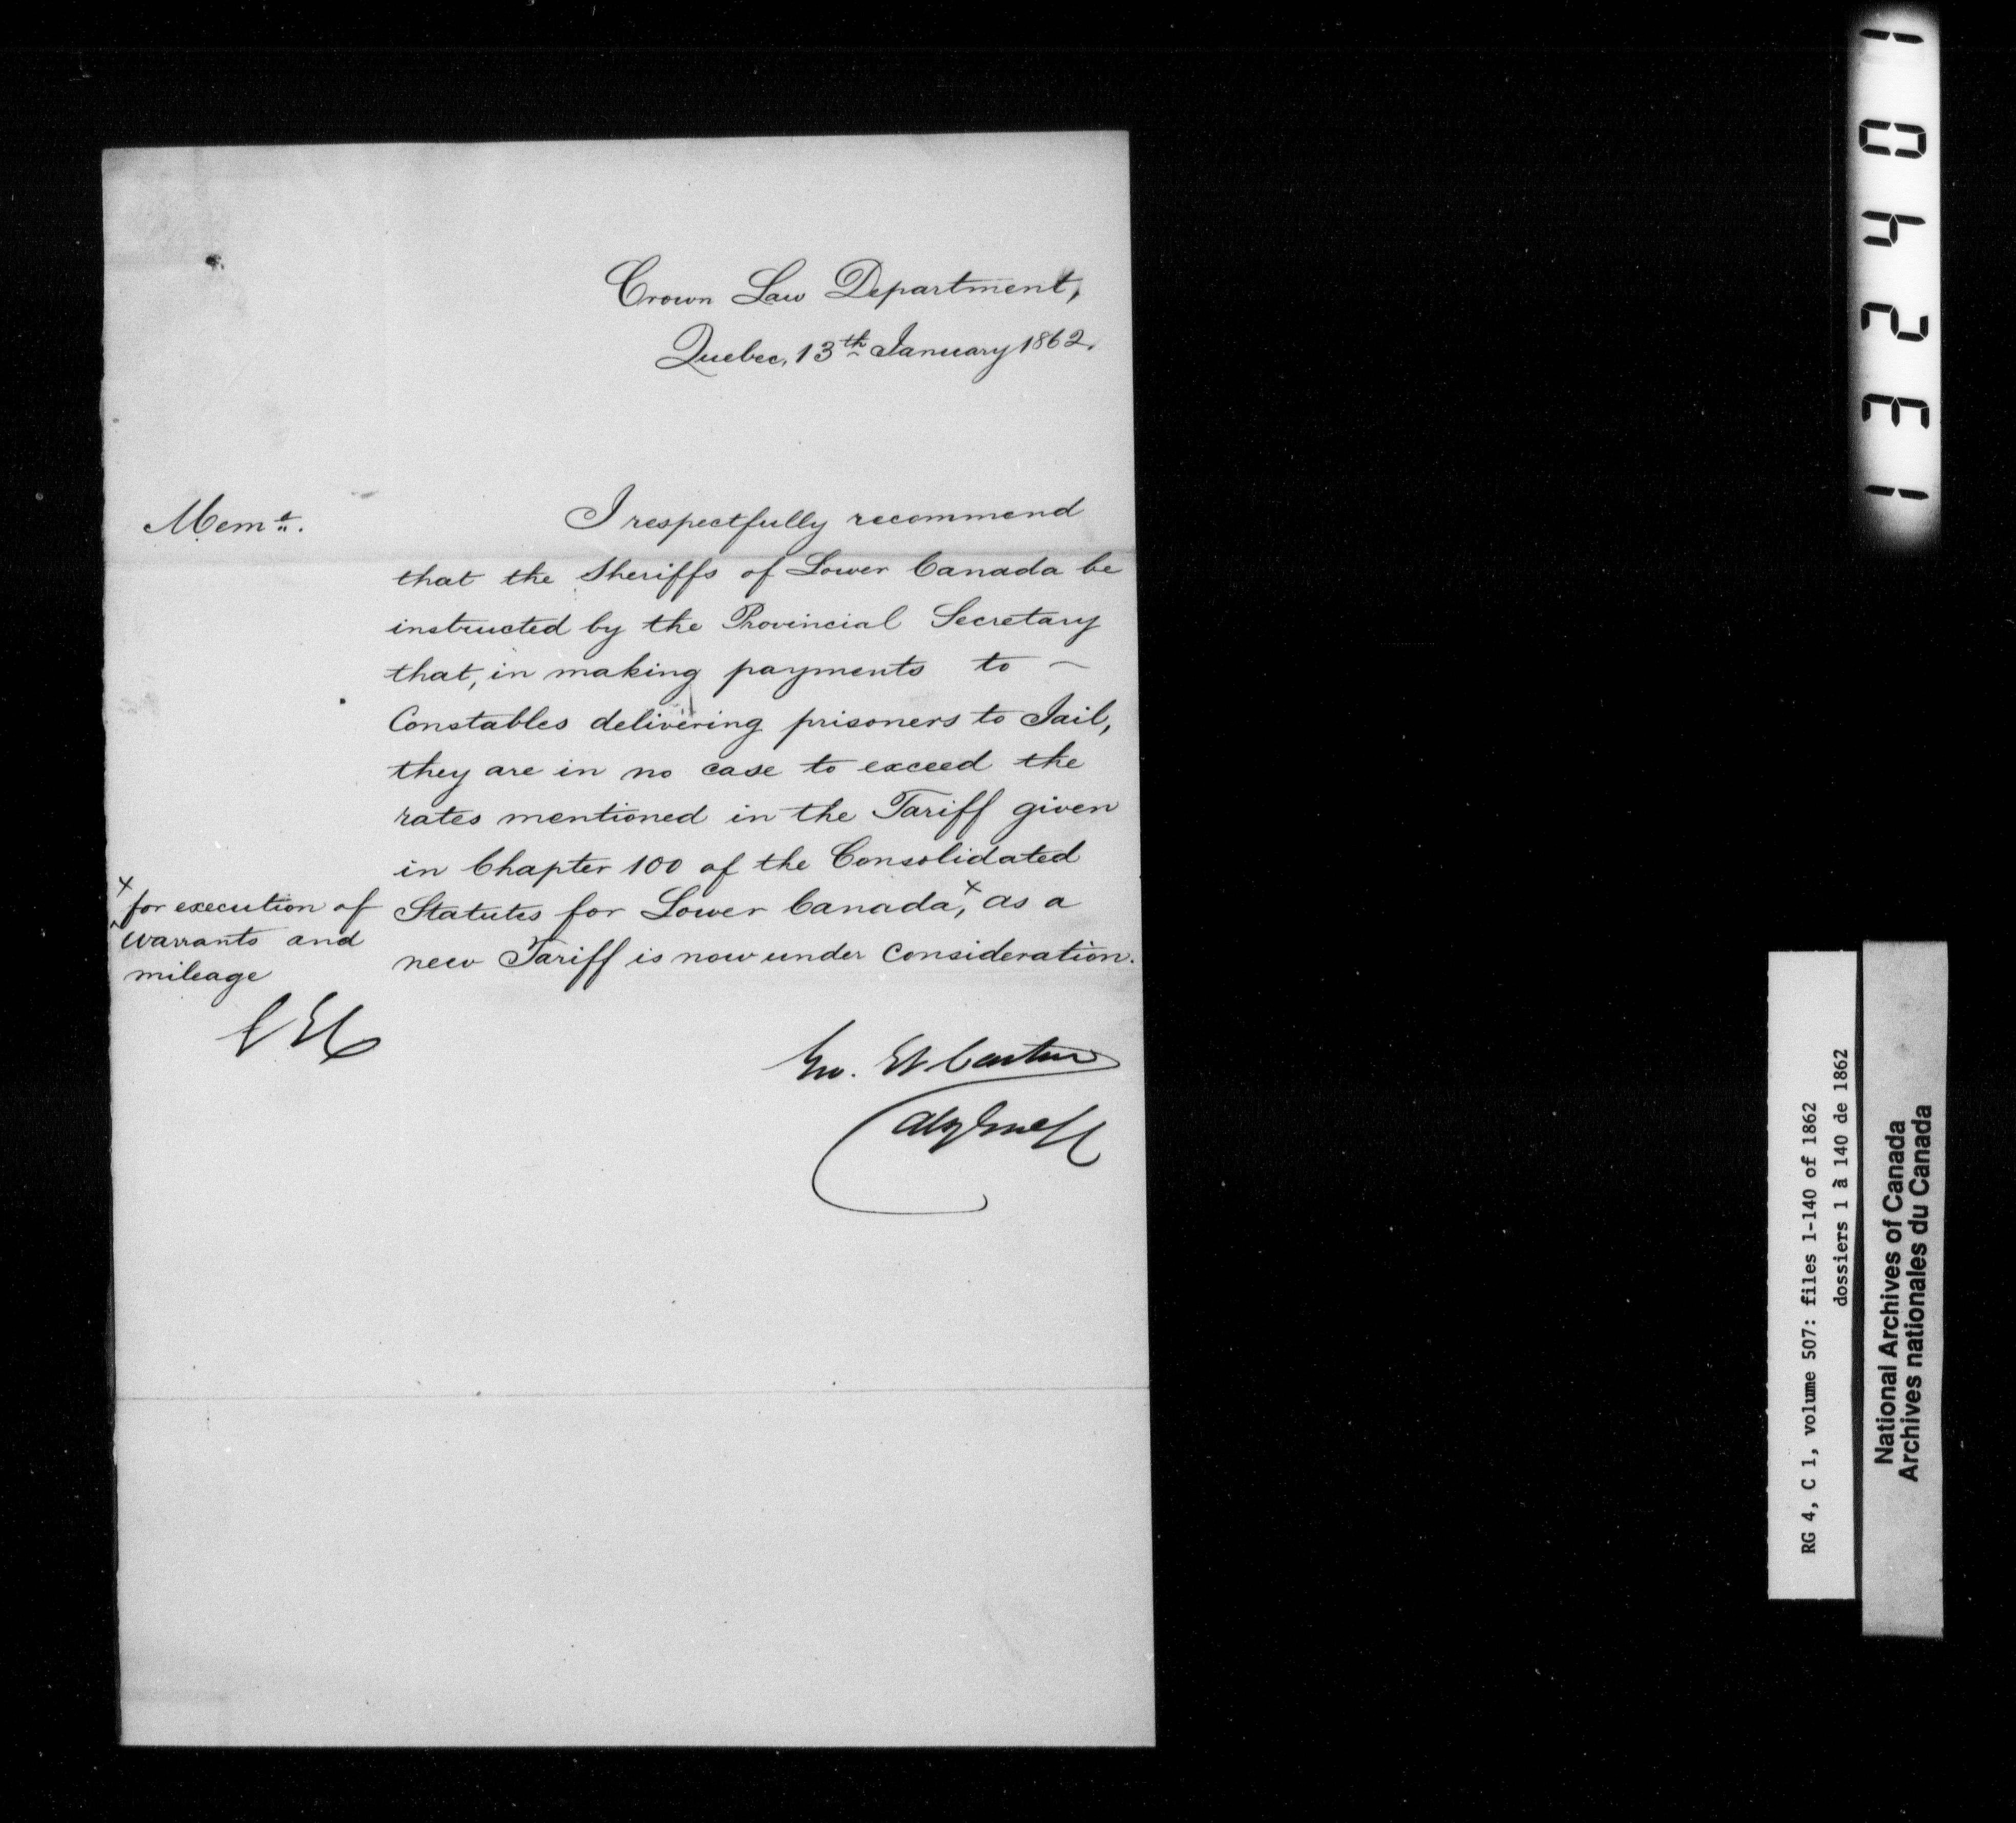 Crown Law Department,
Quebec, 13th January 1862.
Memt.
I respectfully recommend
that the Sheriffs of Lower Canada be
instructed by the Provincial Secretary
that, in making payments to ~
Constables delivering prisoners to Jail,
they are in no case to exceed the
rates mentioned in the Tariff given
in Chapter 100 of the Consolidated
Statutes for Lower Canada,x as a
new Tariff is now under consideration.
x
for execution of
warrants and
mileage
GEC
Geo. Et Cartier
Atty Genl
132401
RG 4, C 1, volume 507: files 1-140 of 1862
dossiers 1 à 140 de 1862
National Archives of Canada
Archives nationales du Canada